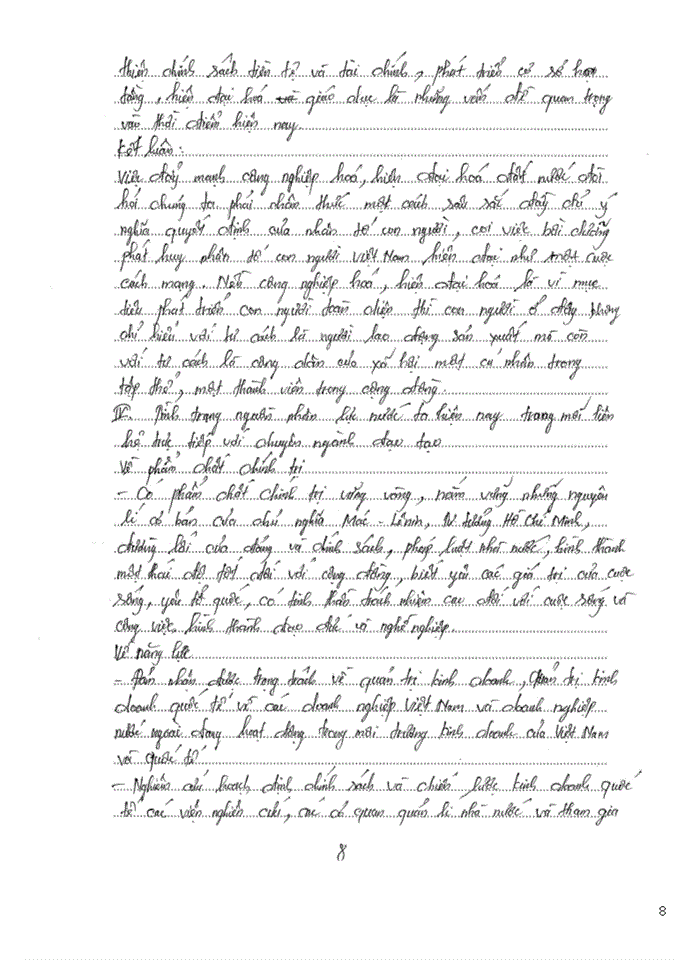 thiện chính sách tiền tệ và tài chính, phát triển cơ sở hạ
tầng, hiện đại hoá và giáo dục là những vấn đề quan trọng
vào thời điểm hiện nay.
Kết luận:
Việc đẩy mạnh công nghiệp hoá, hiện đại hoá đất nước đòi
hỏi chúng ta phải nhận thức một cách sâu sắc đầy đủ ý
nghĩa quyết định của nhân tố con người, coi việc bồi dưỡng
phát huy nhân tố con người Việt Nam hiện đại như một cuộc
cách mạng. Nếu công nghiệp hoá, hiện đại hoá là vì mục
tiêu phát triển con người toàn diện thì con người ở đây không
chỉ hiểu với tư cách là người lao động sản xuất mà còn
với tư cách là công dân của xã hội một cá nhân trong
tập thể, một thành viên trong cộng đồng.
IV. Tình trạng nguồn nhân lực nước ta hiện nay trong mối liên
hệ trực tiếp với chuyên ngành đào tạo
Về phẩm chất chính trị
- Có phẩm chất chính trị vững vàng, nắm vững những nguyên
lí cơ bản của chủ nghĩa Mác - Lênin, tư tưởng Hồ Chí Minh,
đường lối của đảng và chính sách, pháp luật nhà nước, hình thành
một thái độ tốt đối với cộng đồng, biết yêu các giá trị của cuộc
sống, yêu tổ quốc, có tinh thần trách nhiệm cao đối với cuộc sống và
công việc, hình thành đạo đức và nghề nghiệp.
Về năng lực
- Đảm nhận được trọng trách về quản trị kinh doanh, Quản trị kinh
doanh quốc tế với các doanh nghiệp Việt Nam và doanh nghiệp
nước ngoài đang hoạt động trong môi trường kinh doanh của Việt Nam
và Quốc tế
- Nghiên cứu hoạch định chính sách và chiến lược kinh doanh quốc
tế các viện nghiên cứu, các cơ quan quản lí nhà nước và tham gia
8
8